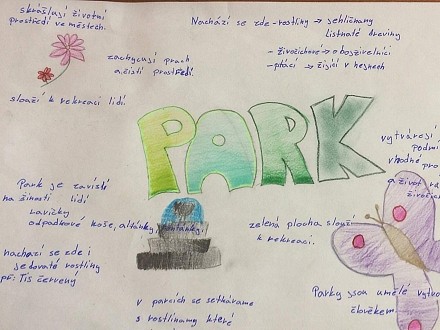 skrášlují životní
prostředí ve městech.
Nachází se zde - rostliny → jehličnany
listnaté dřeviny
- živočichové → obojživelníci
- ptáci → žijící v hnízdech
zachycují prach
a čistí prostředí.
slouží k rekreaci lidí.
PARK
vytvářejí
podmí
vhodné pro
a život
Park je závislý
na činosti lidí
Lavičky
odpadkové koše, altánky, fontánky,
zelená plocha slouží
k rekreaci.
nachází se zde i
jedovaté rostliny
př: Tis červený
v parcích se setkáváme
s rostlinamy které
Parky jsou umělé vytvo
člověkem.